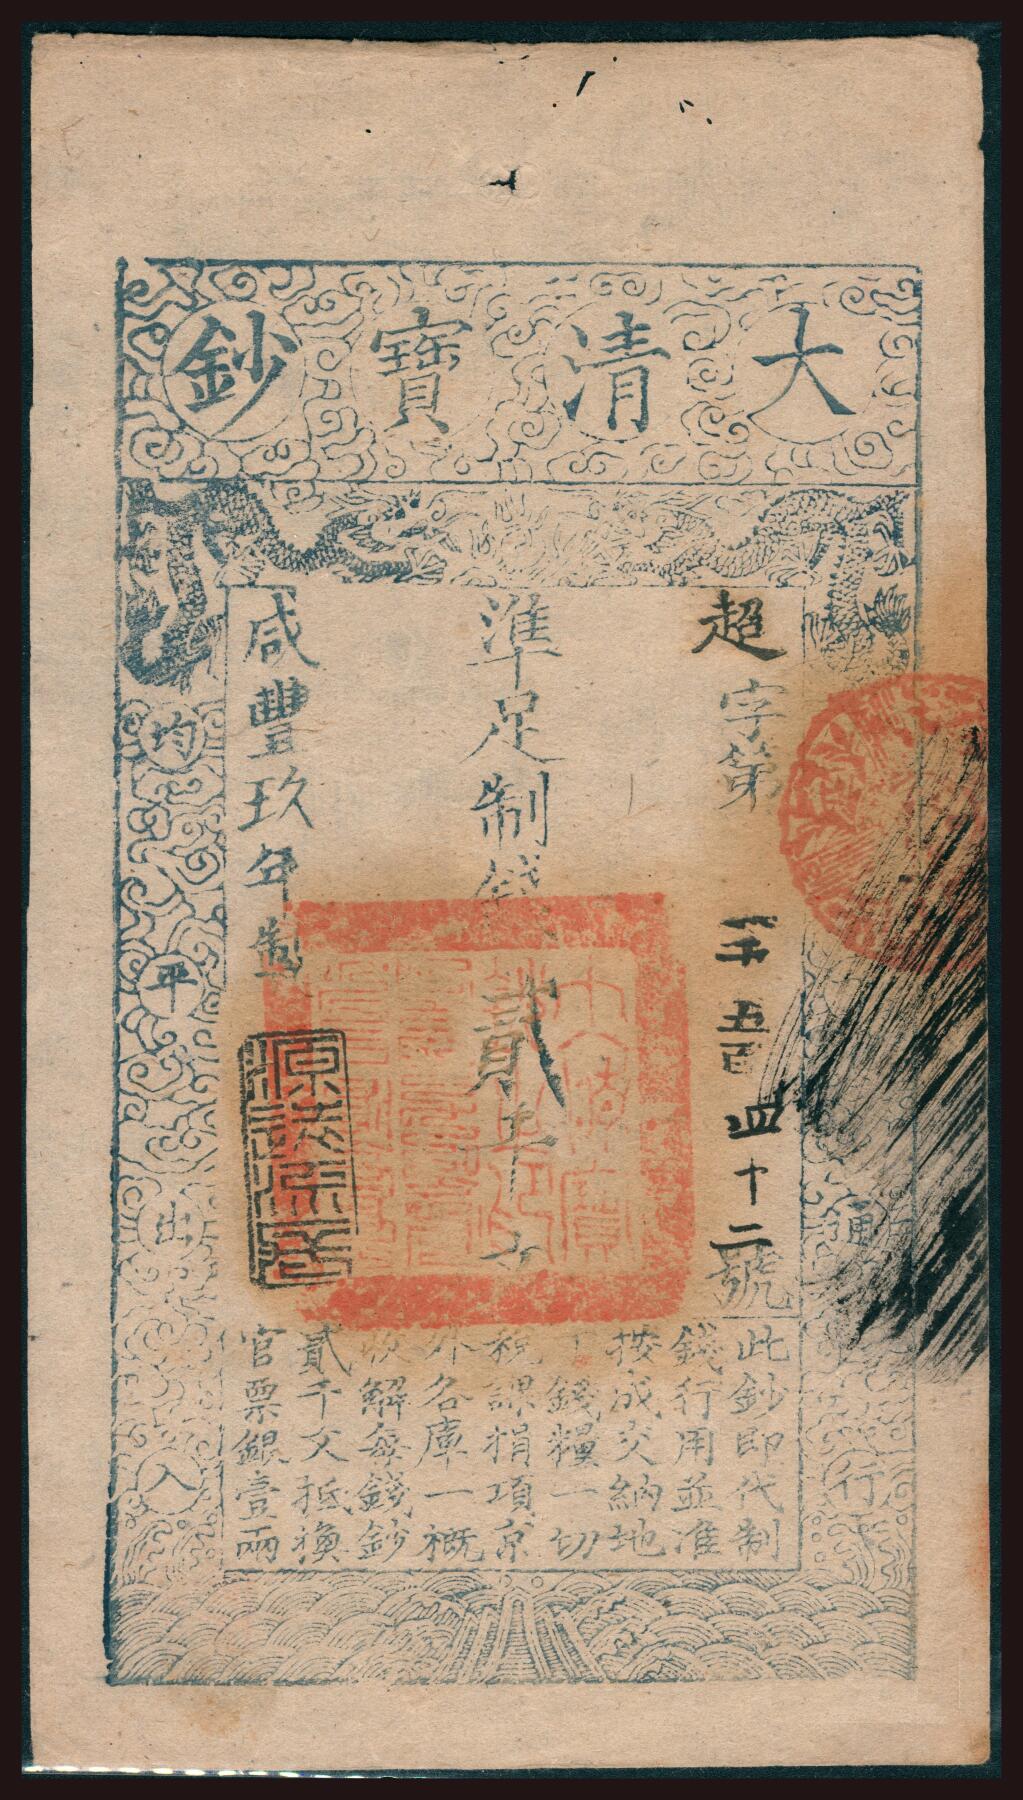 大清寶鈔
超字第
五百四十二號
準足制錢貳千文
咸豐玖年製
均平出入
通行
此鈔即代制
錢行用並准
按成交納地
丁錢糧一切
稅課捐項京
外各庫一概
收解每錢鈔
貳千文抵換
官票銀壹兩